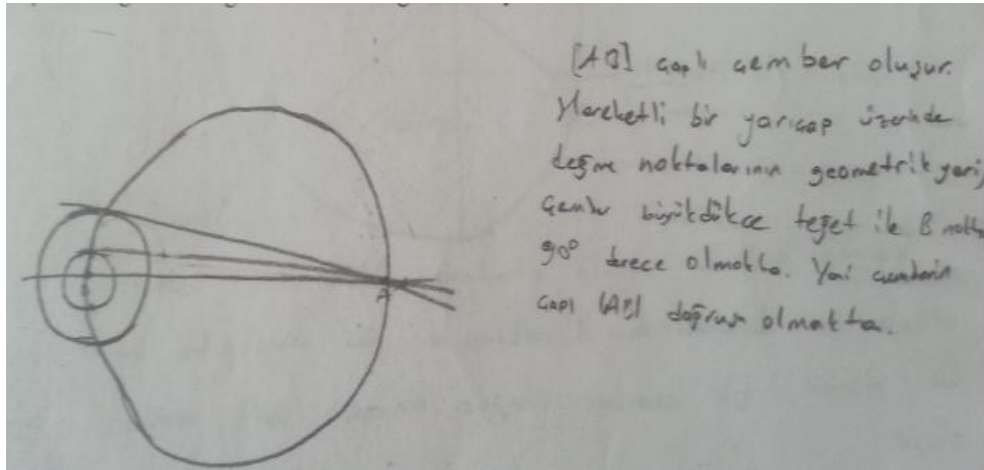 [AB] çaplı çember oluşur.
Hareketli bir yarıçap üzerinde
değme noktalarının geometrik yeri,
Çember büyüdükçe teğet ile B nokta
90° derece olmakta. Yani çemberin
çapı [AB] doğrusu olmakta.
A